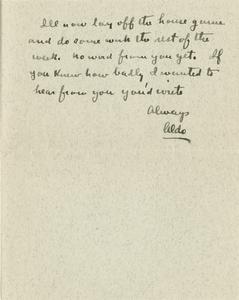 I'll now lay off the home game
and do some work the rest of the
week. No word from you yet. If
you knew how badly I wanted to
hear from you you'd write
Always
Aldo